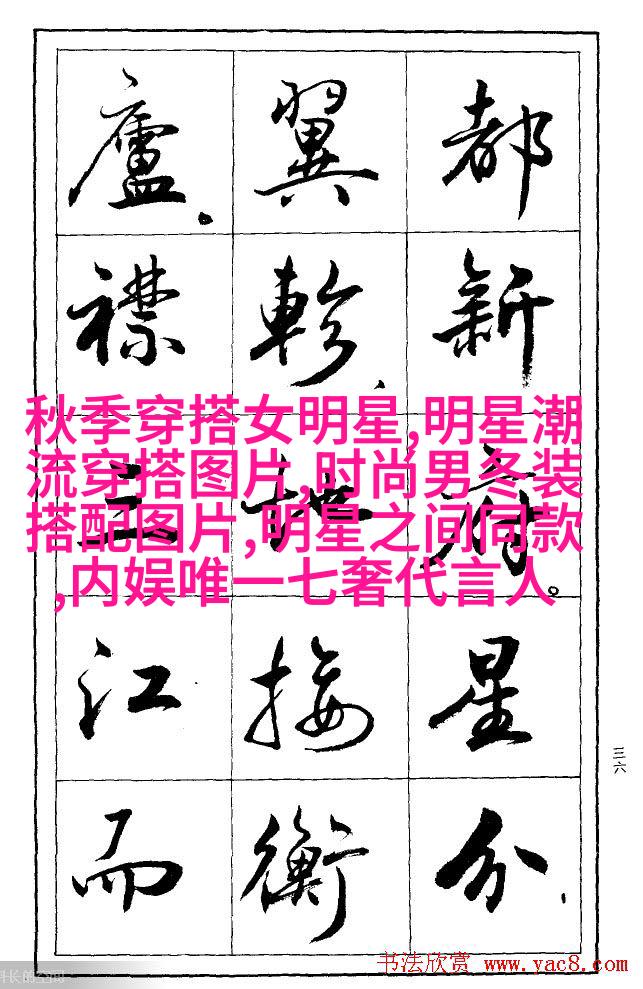 都新府。星分、
翼軫、地接衡
廬。襟三江而
秋季穿搭女明星,明星潮
流穿搭图片,时尚男冬装
搭配图片,明星之间同款
,内娱唯一七奢代言人
三六
书法欣赏 www.yac8.com